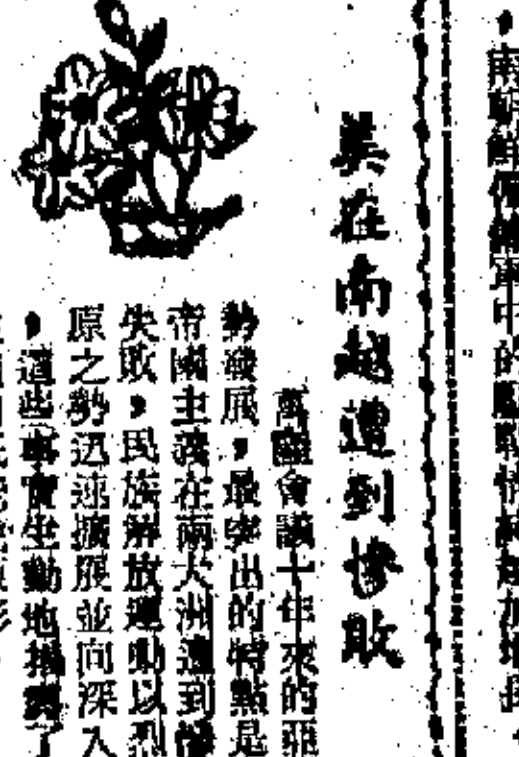 南朝鮮傀儡軍中的厭戰情緒
美在南越遭到慘敗
萬隆會議十年來的亞
勢發展，最突出的特點是
帝國主義在兩大洲遭到慘
失敗，民族解放運動以烈
原之勢迅速擴展並向深入
，這些事實生動地揭露了